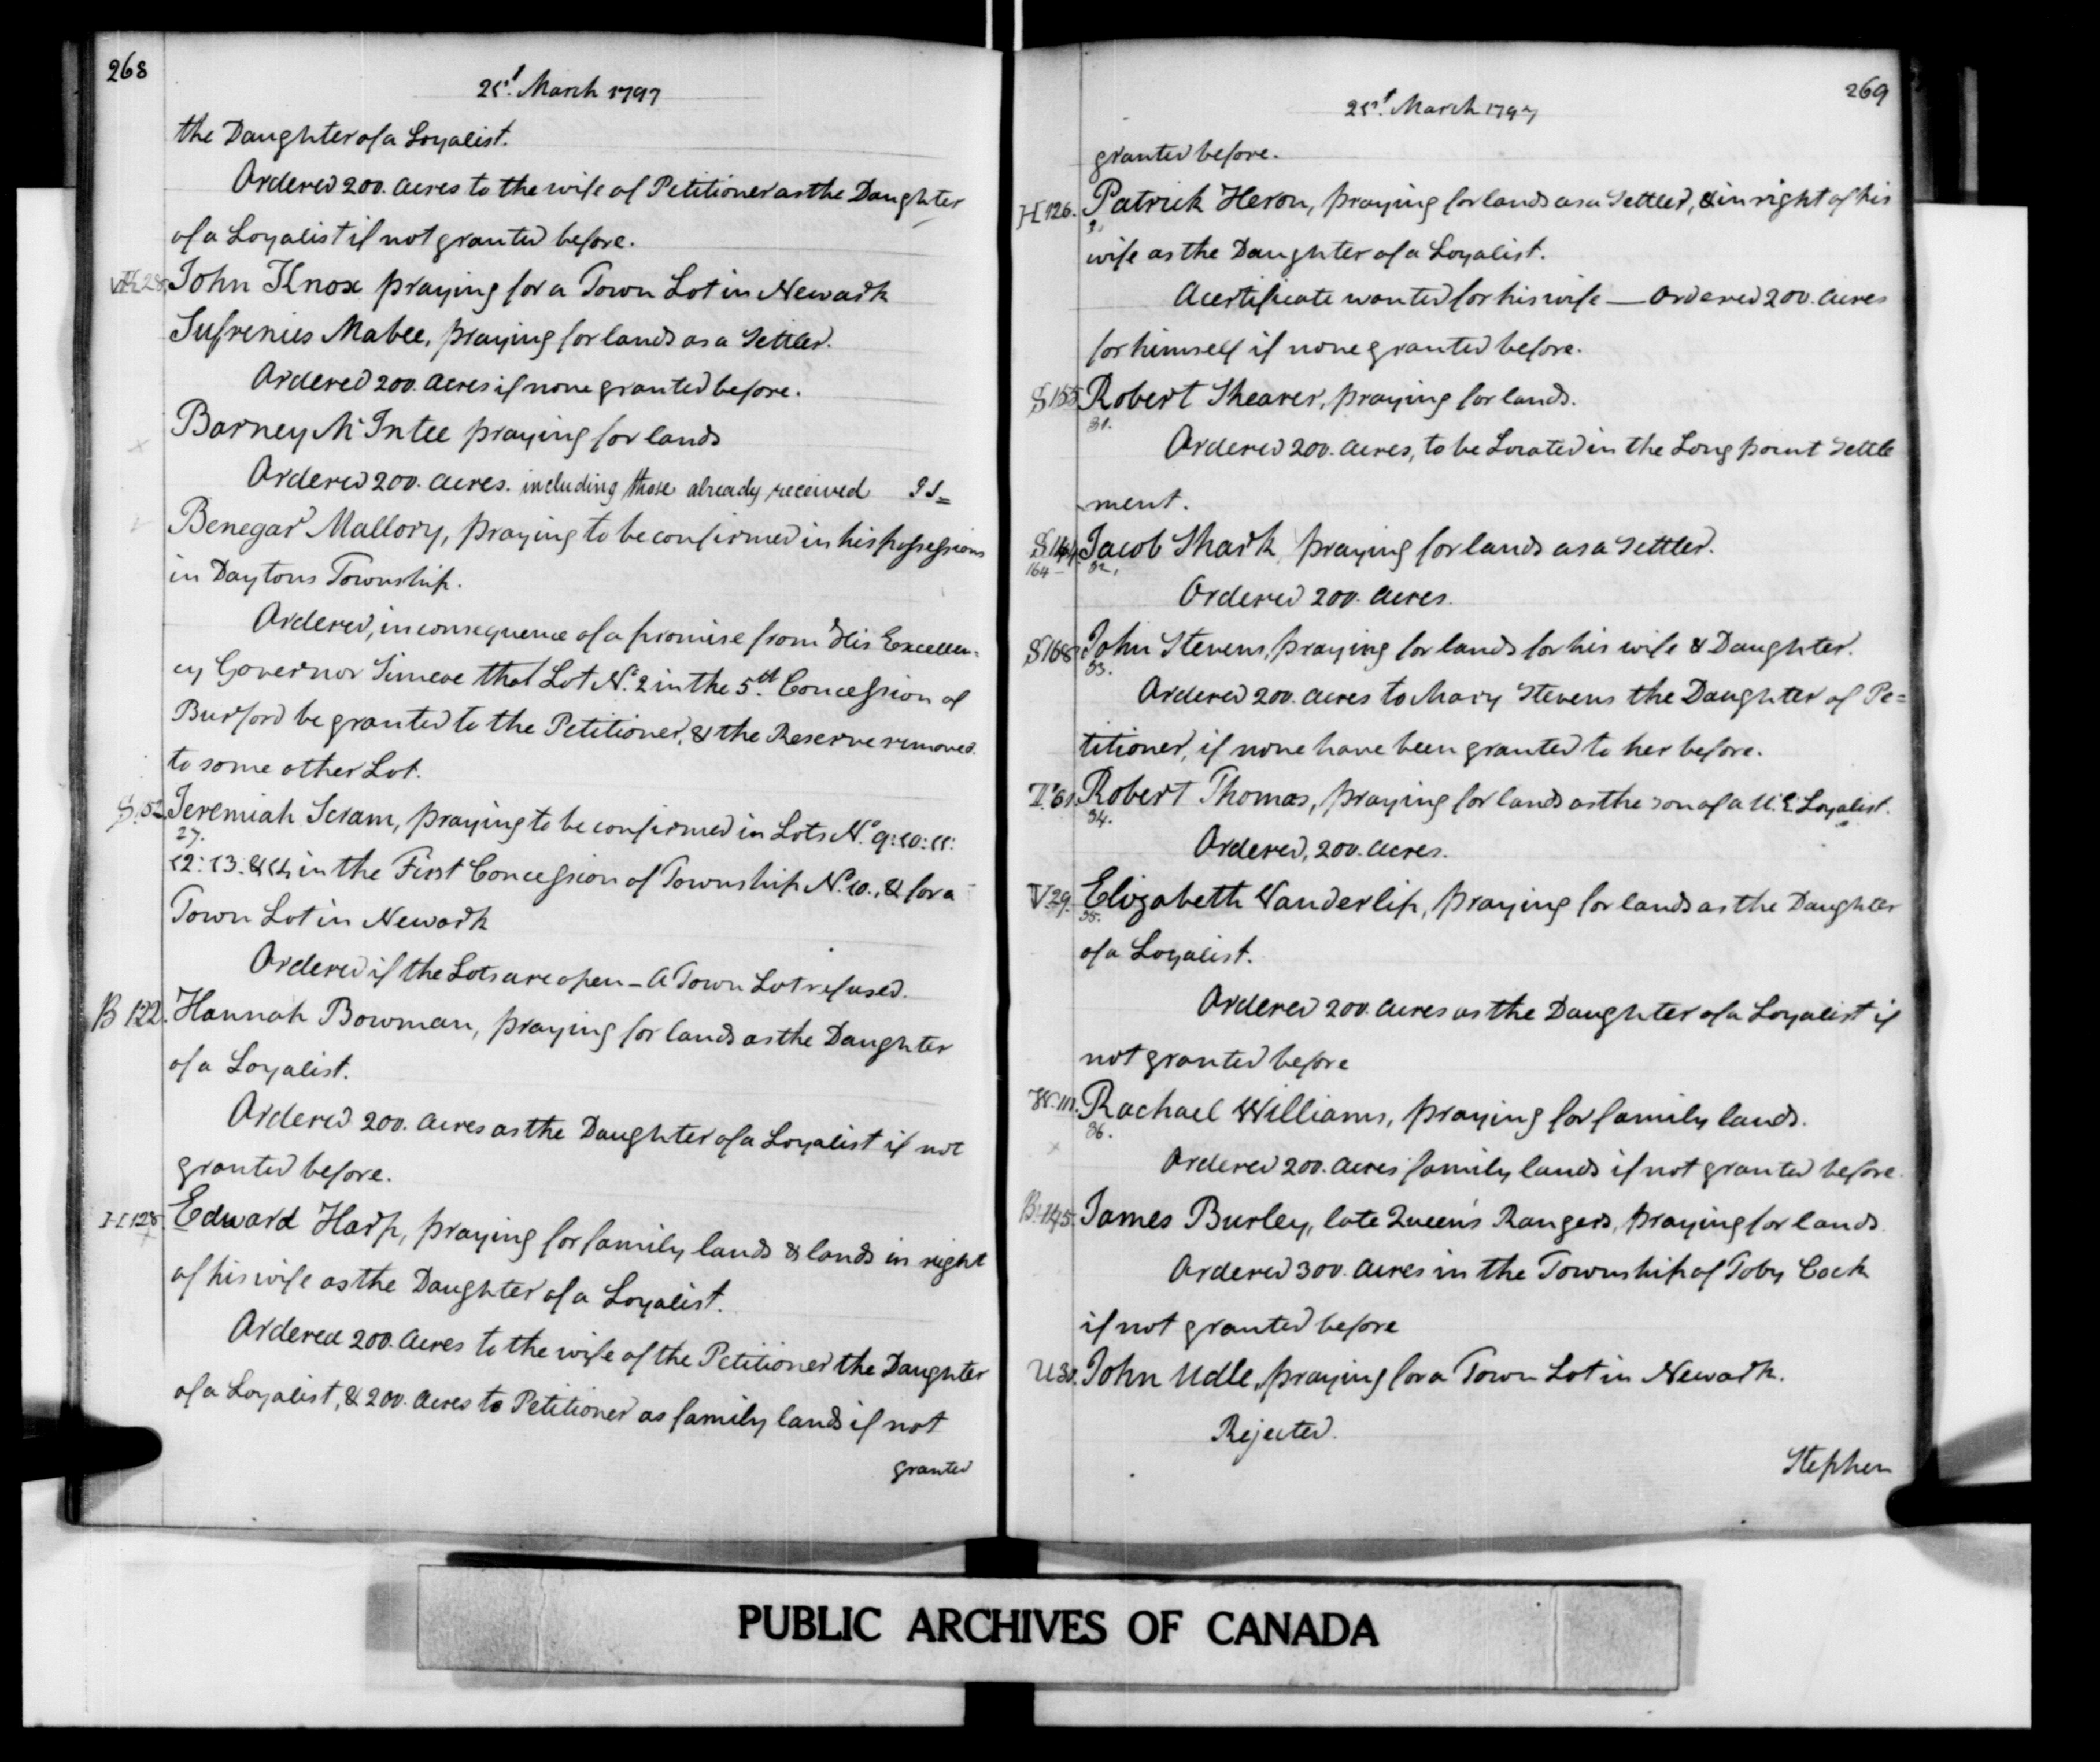 268
21st. March 1797
the Daughter of a Loyalist.
Ordered 200. Acres to the wife of Petitioner as the Daughter
of a Loyalist if not granted before.
John Knox praying for a Town Lot in Newark
Sufrenius Mabee, praying for lands as a Settler.
Ordered 200. Acres if none granted before.
Barney McIntee praying for lands
Ordered 200. Acres. including those already received
Benegar Mallory, praying to be confirmed in his possessions
in Daytons Township.
Ordered, in consequence of a promise from His Excellen=
cy Governor Simcoe that Lot No. 2 in the 5th. Concession of
Burford be granted to the Petitioner, & the Reserve removed
to some other Lot.
S. 52. Jeremiah Scram, praying to be confirmed in Lots No. 9: 10: 11:
27.
12: 13. & 14 in the First Concession of Township No. 10., & for a
Town Lot in Newark
Ordered if the Lots are open – A Town Lot refused.
B 122. Hannah Bowman, praying for lands as the Daughter
of a Loyalist.
Ordered 200. Acres as the Daughter of a Loyalist if not
granted before.
H 128 Edward Harp, praying for family lands & lands in right
of his wife as the Daughter of a Loyalist.
Ordered 200. Acres to the wife of the Petitioner the Daughter
of a Loyalist, & 200. Acres to Petitioner as family lands if not
granted
269
21st. March 1797
granted before.
H 126. Patrick Heron, praying for lands as a Settler, & in right of his
wife as the Daughter of a Loyalist.
A certificate wanted for his wife — Ordered 200. Acres
for himself if none granted before.
S 155 Robert Shearer, praying for lands.
31.
Ordered 200. Acres, to be Located in the Long point Settle
ment.
Jacob Shark, praying for lands as a Settler.
164 32,
Ordered 200. Acres.
S 168 John Stevens, praying for lands for his wife & Daughter.
33.
Ordered 200. Acres to Mary Stevens the Daughter of Pe=
titioner, if none have been granted to her before.
T. 61. Robert Thomas, praying for lands as the son of a U. E Loyalist.
34.
Ordered, 200. Acres.
V 29. Elizabeth Vanderlip, praying for lands as the Daughter
35.
of a Loyalist.
Ordered 200. Acres as the Daughter of a Loyalist if
not granted before
W. 111. Rachael Williams, praying for family lands.
36.
Ordered 200. Acres family lands if not granted before.
B. 145. James Burley, late Queen's Rangers, praying for lands.
Ordered 300. Acres in the Township of Toby Cock
if not granted before
U 30. John Udle, praying for a Town Lot in Newark.
Rejected.
Stephen
PUBLIC ARCHIVES OF CANADA